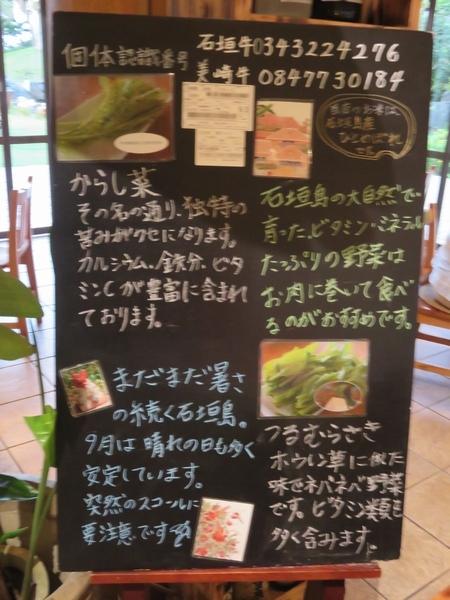 個体認識番号
石垣牛0343224276
美崎牛 0847730184
当店のお米は、
石垣島産
ひとめぼれ
です。
からし菜
その名の通り、独特の
苦みがクセになります。
カルシウム、鉄分、ビタ
ミンCが豊富に含まれ
ております。
石垣島の大自然で
育った、ビタミン・ミネラル
たっぷりの野菜は
お肉に巻いて食べ
るのがおすすめです。
まだまだ暑さ
の続く石垣島。
9月は晴れの日も多く
安定しています。
突然のスコールに
要注意です
つるむらさき
ホウレン草に似た
味でネバネバ野菜
です。ビタミン類も
多く含みます。